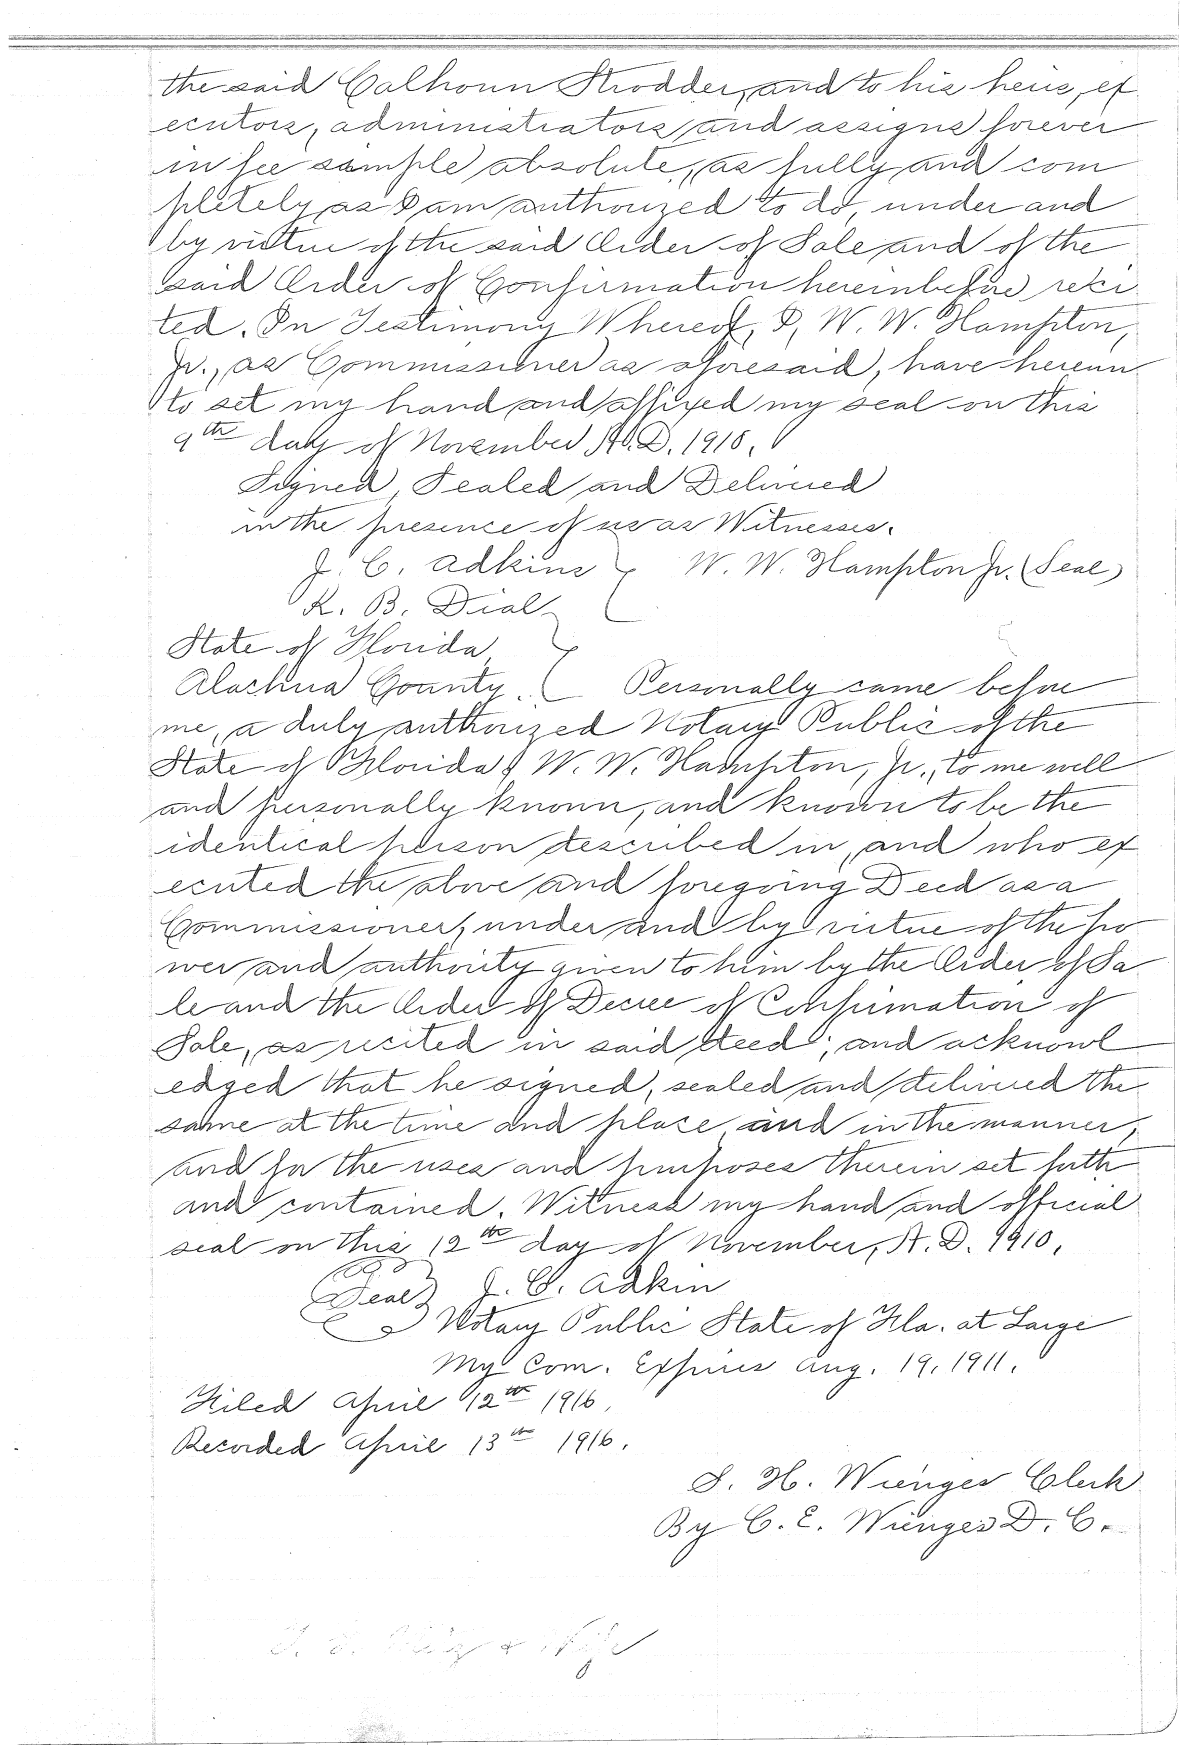 the said Calhoun Strodder, and to his heirs, ex
ecutors, administrators, and assigns, forever
in fee simple absolute, as fully and com
pletely as I am authorized to do, under and
by virtue of the said Order of Sale and of the
said Order of Confirmation hereinbefore reci
ted. In Testimony Whereof, I, W. W. Hampton,
Jr., as Commissioner as aforesaid, have hereun
to set my hand and affixed my seal on this
9th day of November A.D. 1910.
Signed, Sealed and Delivered
in the presence of us as Witnesses.
J. C. Adkins W. W. Hampton Jr. (Seal)
R. B. Dial
State of Florida,
Alachua County. Personally came before
me, a duly authorized Notary Public of the
State of Florida, W. W. Hampton, Jr., to me well
and personally known, and known to be the
identical person described in, and who ex
ecuted the above and foregoing Deed as a
Commissioner, under and by virtue of the po
wer and authority given to him by the Order of Sa
le and the Order of Decree of Confirmation of
Sale, as recited in said deed; and acknowl
edged that he signed, sealed and delivered the
same at the time and place, and in the manner,
and for the uses and purposes therein set forth
and contained. Witness my hand and official
seal on this 12th day of November, A.D. 1910.
(Seal) J. C. Adkin
Notary Public State of Fla. at Large
My Com. Expires Aug. 19, 1911.
Filed April 12th 1916.
Recorded April 13th 1916.
S. H. Wienges Clerk
By C. E. Wienges D. C.